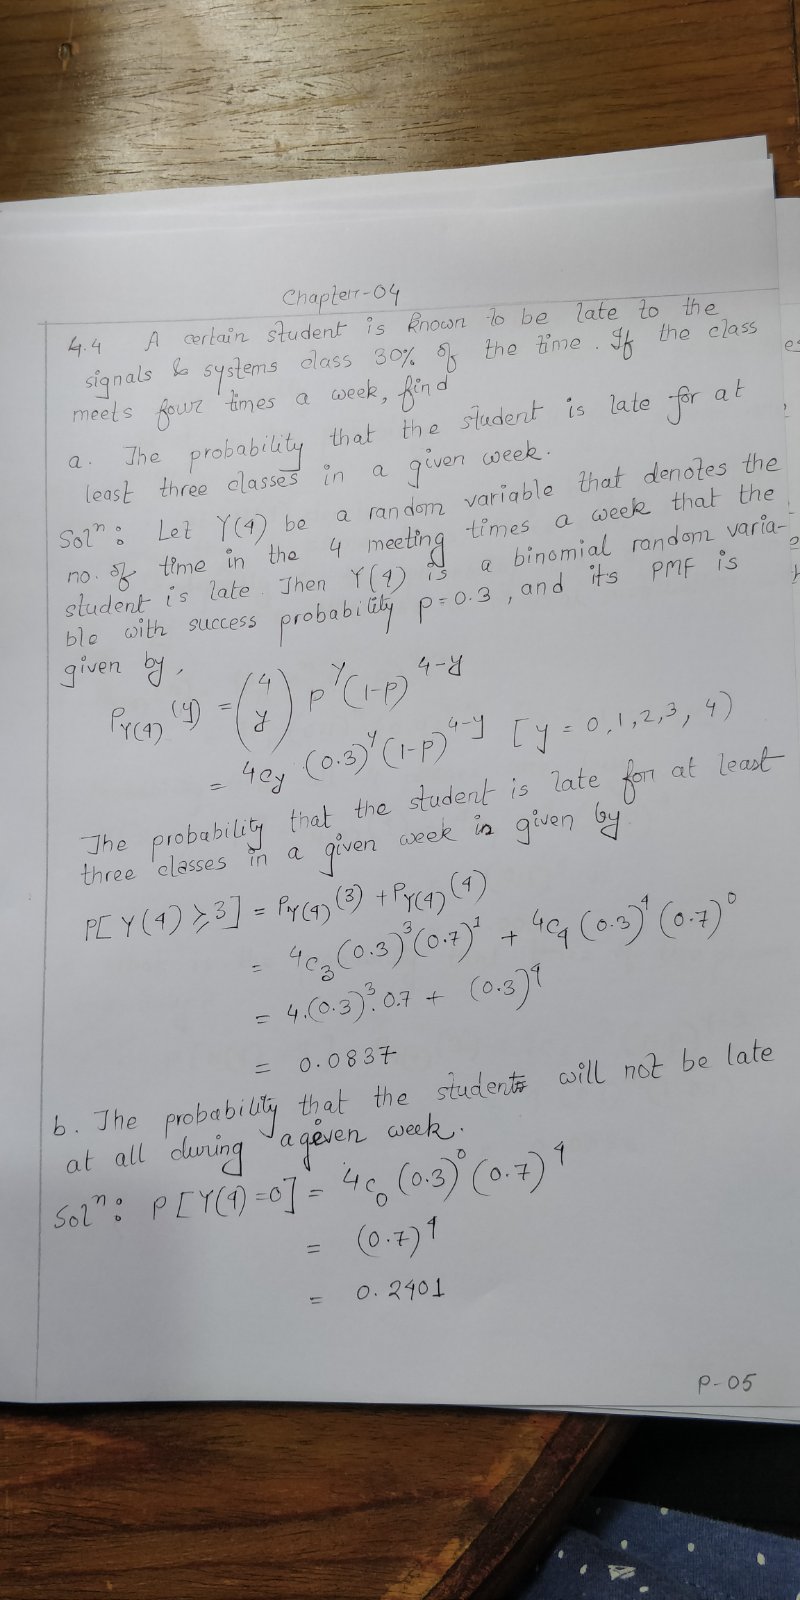 Chapter-04
4.4 A certain student is known to be late to the
signals & systems class 30% of the time. If the class
meets four times a week, find
a. The probability that the student is late for at
least three classes in a given week.
Solⁿ: Let Y(4) be a random variable that denotes the
no. of time in the 4 meeting times a week that the
student is late. Then Y(4) is a binomial random varia-
ble with success probability p=0.3, and its PMF is
given by,
P_{Y(4)}(y) = (4 y) p^y (1-p)^{4-y}
= 4c_y (0.3)^y (1-p)^{4-y} [y = 0,1,2,3, 4)
The probability that the student is late for at least
three classes in a given week is given by
P[Y(4) ≥ 3] = P_{Y(4)}(3) + P_{Y(4)}(4)
= 4c_3 (0.3)^3 (0.7)^1 + 4c_4 (0.3)^4 (0.7)^0
= 4.(0.3)^3. 0.7 + (0.3)^4
= 0.0837
b. The probability that the student will not be late
at all during a given week.
Solⁿ: P[Y(4)=0] = 4c_0 (0.3)^0 (0.7)^4
= (0.7)^4
= 0.2401
P-05